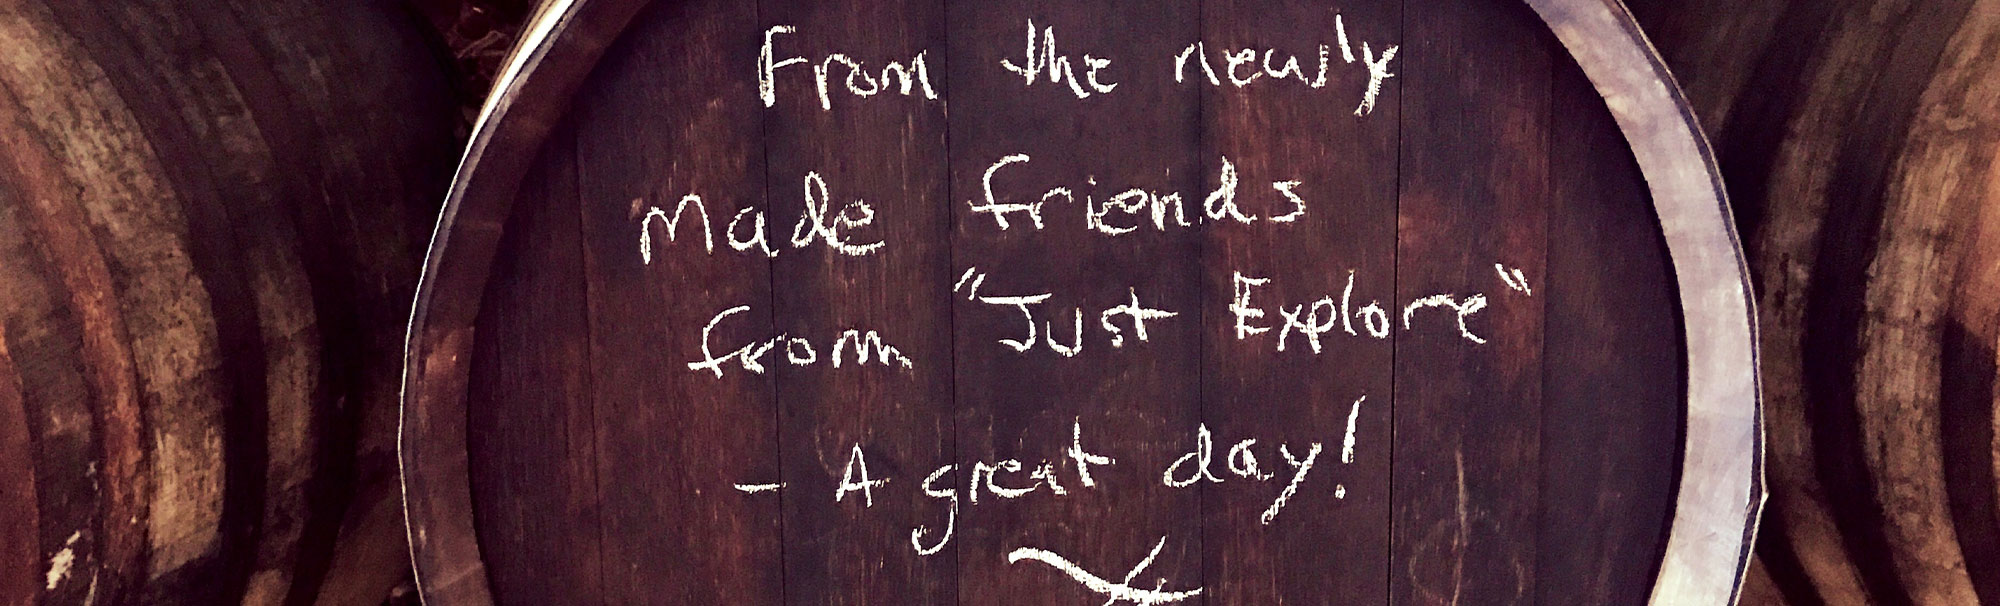 From the newly
Made friends
from "Just Explore"
- A great day!